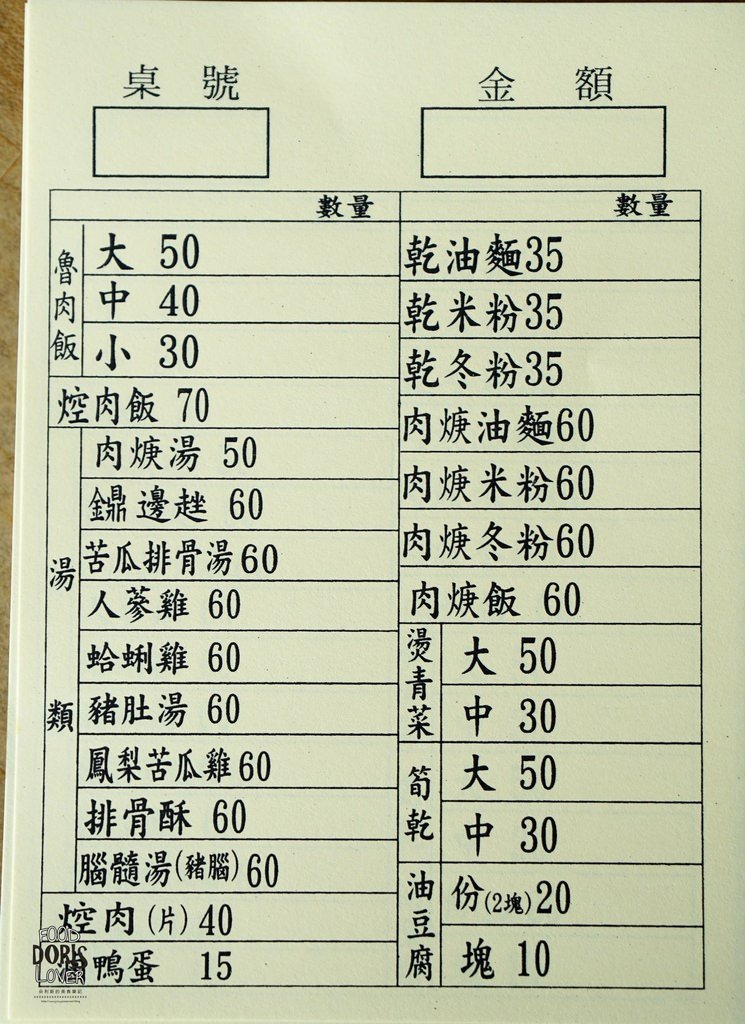 桌號
金額
數量
魯肉飯
大 50
中 40
小 30
焢肉飯 70
湯類
肉焿湯 50
鼎邊趖 60
苦瓜排骨湯 60
人蔘雞 60
蛤蜊雞 60
豬肚湯 60
鳳梨苦瓜雞 60
排骨酥 60
腦髓湯(豬腦) 60
焢肉(片) 40
鴨蛋 15
數量
乾油麵 35
乾米粉 35
乾冬粉 35
肉焿油麵 60
肉焿米粉 60
肉焿冬粉 60
肉焿飯 60
燙青菜
大 50
中 30
筍乾
大 50
中 30
油豆腐
份(2塊) 20
塊 10
FOOD
DORIS
LOVER